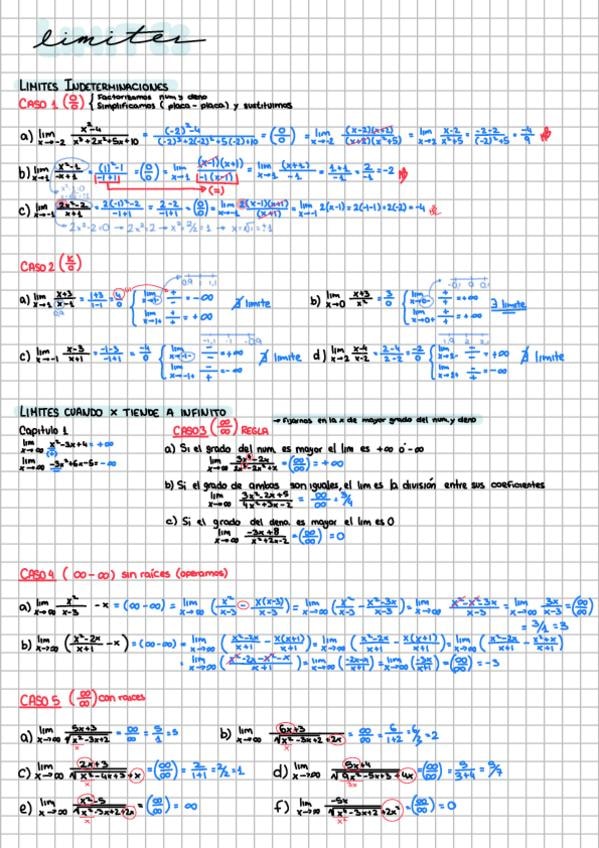 limites
LIMITES INDETERMINACIONES
CASO 1 (0/0) { Factorizamos num y deno
Simplificamos (placa-placa) y sustituimos
a) lim x→-2 (x²-4)/(x³+2x²+5x+10) = ((-2)²-4)/((-2)³+2(-2)²+5(-2)+10) = (0/0) = lim x→-2 ((x-2)(x+2))/((x+2)(x²+5)) = lim x→-2 (x-2)/(x²+5) = (-2-2)/((-2)²+5) = -4/9
b) lim x→1 (x²-1)/(-x+1) = ((1)²-1)/(-1+1) = (0/0) = lim x→1 ((x-1)(x+1))/(-1(x-1)) = lim x→1 (x+1)/-1 = (1+1)/-1 = 2/-1 = -2
c) lim x→-1 (2x²-2)/(x+1) = (2(-1)²-2)/(-1+1) = (2-2)/(-1+1) = (0/0) = lim x→-1 (2(x-1)(x+1))/(x+1) = lim x→-1 2(x-1) = 2(-1-1) = 2(-2) = -4
2x²-2=0 → 2x²=2 → x²=2/2=1 → x=√1=±1
CASO 2 (k/0)
a) lim x→1 (x+3)/(x-1) = (1+3)/(1-1) = 4/0 { lim x→1- +/- = -∞
lim x→1+ +/+ = +∞ ∄ limite
b) lim x→0 (x+3)/x² = 3/0 { lim x→0- +/+ = +∞
lim x→0+ +/+ = +∞ ∃ limite
c) lim x→-1 (x-3)/(x+1) = (-1-3)/(-1+1) = -4/0 { lim x→-1- -/- = +∞
lim x→-1+ -/+ = -∞ ∄ limite
d) lim x→2 (x-4)/(x-2) = (2-4)/(2-2) = -2/0 { lim x→2- -/- = +∞
lim x→2+ -/+ = -∞ ∄ limite
LIMITES CUANDO X TIENDE A INFINITO
→ Fijarnos en la x de mayor grado del num. y deno
Capitulo 1
lim x→∞ x²-3x+4 = +∞
lim x→∞ -3x²+6x-5 = -∞
CASO 3 (∞/∞) REGLA
a) Si el grado del num. es mayor el lim es +∞ ó -∞
b) Si el grado de ambos son iguales, el lim es la división entre sus coeficientes
lim x→∞ (3x²-2x+5)/(4x²+3x-2) = ∞/∞ = 3/4
c) Si el grado del deno. es mayor el lim es 0
lim x→∞ (-3x+8)/(x²+2x-2) = (∞/∞) = 0
CASO 4 (∞-∞) sin raíces (operamos)
a) lim x→∞ x²/(x-3) - x = (∞-∞) = lim x→∞ (x²/(x-3) - x(x-3)/(x-3)) = lim x→∞ (x²/(x-3) - (x²-3x)/(x-3)) = lim x→∞ (x²-x²-3x)/(x-3) = lim x→∞ 3x/(x-3) = (∞/∞)
= 3/1 = 3
b) lim x→∞ ((x²-2x)/(x+1) - x) = (∞-∞) = lim x→∞ ((x²-2x)/(x+1) - x(x+1)/(x+1)) = lim x→∞ ((x²-2x)/(x+1) - x(x+1)/(x+1)) = lim x→∞ ((x²-2x)/(x+1) - (x²+x)/(x+1))
= lim x→∞ ((x²-2x-x²-x)/(x+1)) = lim x→∞ ((-2x-x)/(x+1)) = lim x→∞ (-3x/(x+1)) = (∞/∞) = -3
CASO 5 (∞/∞) con raices
a) lim x→∞ (5x+3)/√(x²-3x+2) = ∞/∞ = 5/1 = 5
b) lim x→∞ (6x+3)/(√(x²-3x+2)+2x) = ∞/∞ = 6/(1+2) = 6/3 = 2
c) lim x→∞ (2x+3)/(√(x²-4x+3)+x) = (∞/∞) = 2/(1+1) = 2/2 = 1
d) lim x→∞ (5x+4)/(√(9x²-5x+3)+4x) = (∞/∞) = 5/(3+4) = 5/7
e) lim x→∞ (x²-5)/(√(x²-3x+2)+2x) = (∞/∞) = ∞
f) lim x→∞ -5x/(√(x²-3x+2)+2x²) = (∞/∞) = 0